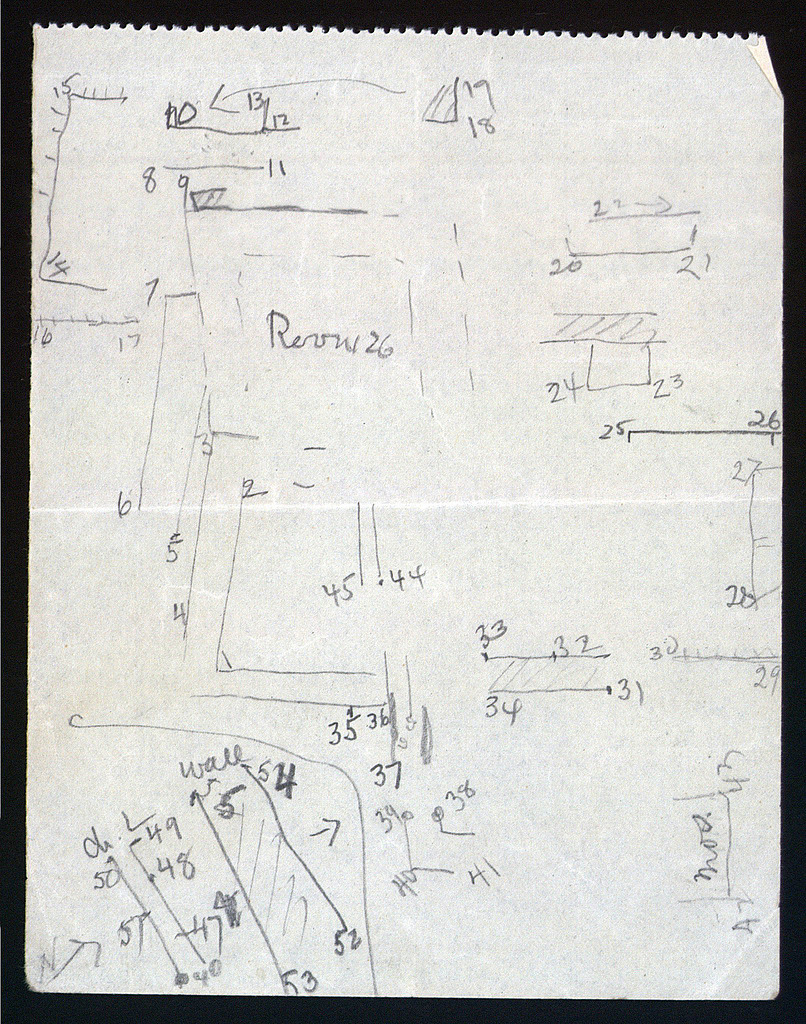 15
10
13
12
19
18
8
11
9
22
20
21
7
16
17
Room 26
24
23
25
26
3
2
27
6
5
45
44
28
4
33
32
30
29
34
31
35
36
37
wall
54
5
43
39
38
49
50
48
40
41
51
47
52
53
N